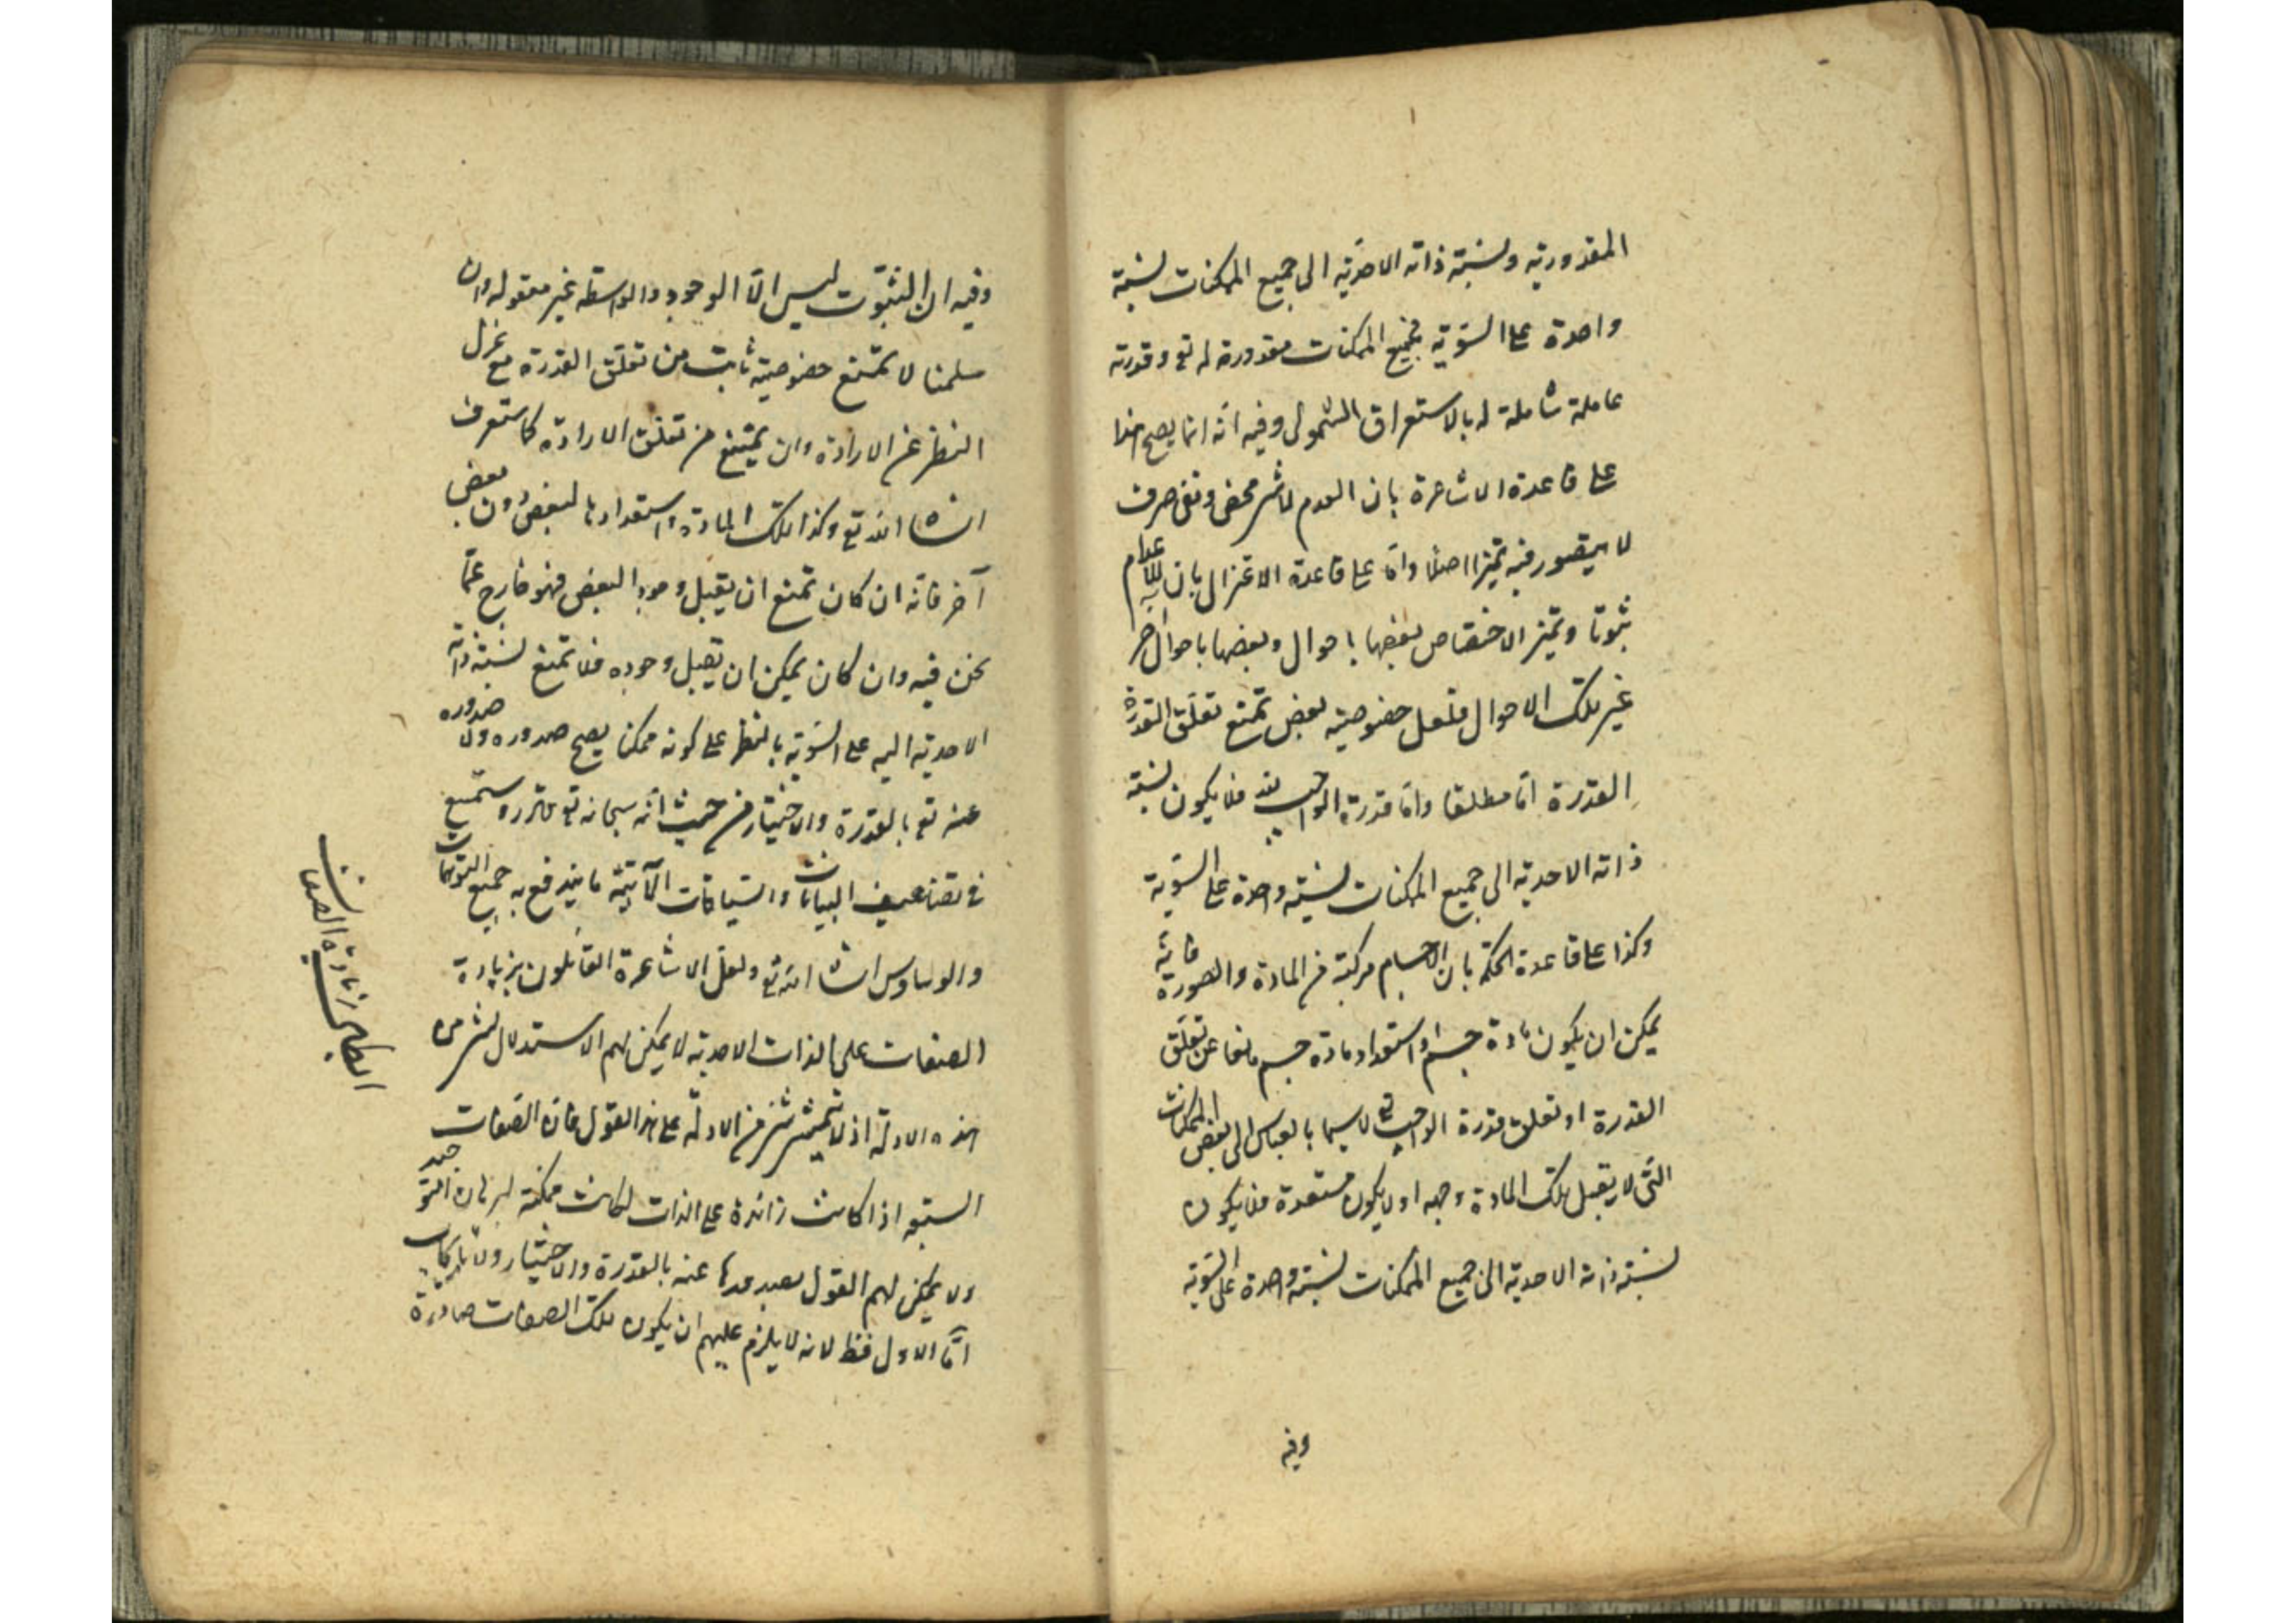 المقدورية ونسبة ذاته الاحدية الى جميع الممكنات نسبة
واحدة على السوية فجميع الممكنات مقدورة له تع وقدرته
عاملة شاملة له بالاستغراق الشمولى وفيه انه انما يصح هذا
على قاعدة الاشاعرة بان العدم لا شئ محض ونفى صرف
لا يتصور فيه تميزا اصلا واما على قاعدة الاعتزال بان للاعدام
ثبوتا وتميز الاختصاص بعضها باحوال وبعضها باحوال اخر
غير تلك الاحوال فلعل خصوصية بعض تمنع تعلق القدرة
القدرة اما مطلقا واما قدرة الواجب فلا يكون نسبة
ذاته الاحدية الى جميع الممكنات نسبة واحدة على السوية
وكذا على قاعدة الحكمة بان الاجسام مركبة من المادة والصورة فانه
يمكن ان يكون مادة جسم او استعداد مادة جسم مانعا عن تعلق
القدرة او تعلق قدرة الواجب تع لا سيما بالقياس الى بعض الممكنات
التى لا يقبل تلك المادة وجوده او لا يكون مستعدة فلا يكون
نسبة ذاته الاحدية الى جميع الممكنات نسبة واحدة على السوية
وفيه
وفيه ان الثبوت ليس الا الوجود والواسطه غير معقوله وان
سلمنا لا تمتنع خصوصية ثابت من تعلق القدرة مع عزل
النظر عن الارادة وان يمتنع من تعلق الارادة كما ستعرف
انشاء الله تع وكذا تلك المادة واستعدادها لبعض دون بعض
آخر فانه ان كان تمنع ان يقبل وجود البعض فهو خارج عما
نحن فيه وان كان يمكن ان تقبل وجوده فلا تمنع نسبة ذاته
الاحدية اليه على السوية بالنظر على كونه ممكنا يصح صدوره ولا صدوره
عنه تع بالقدرة والاختيار من حيث انه سبحانه تع قادر وستسمع
فى تضاعيف البيانات والسياقات الآتية ما يندفع به جميع التوهمات
والوساوس انشاء الله تع ولعل الاشاعرة القائلون بزيادة
الصفات على الذات الاحدية لا يمكن لهم الاستدلال بشئ من
هذه الادلة اذ لا يتمشى شئ من الادلة على هذا القول فان الصفات
السبعه اذا كانت زائدة على الذات لكانت ممكنة لبرهان التوحيد
ولا يمكن لهم القول بصدورها عنه بالقدرة والاختيار ولا بالايجاب
اما الاول فظ لانه لا يلزم عليهم ان يكون تلك الصفات صادرة
ابطال زيادة الصفات